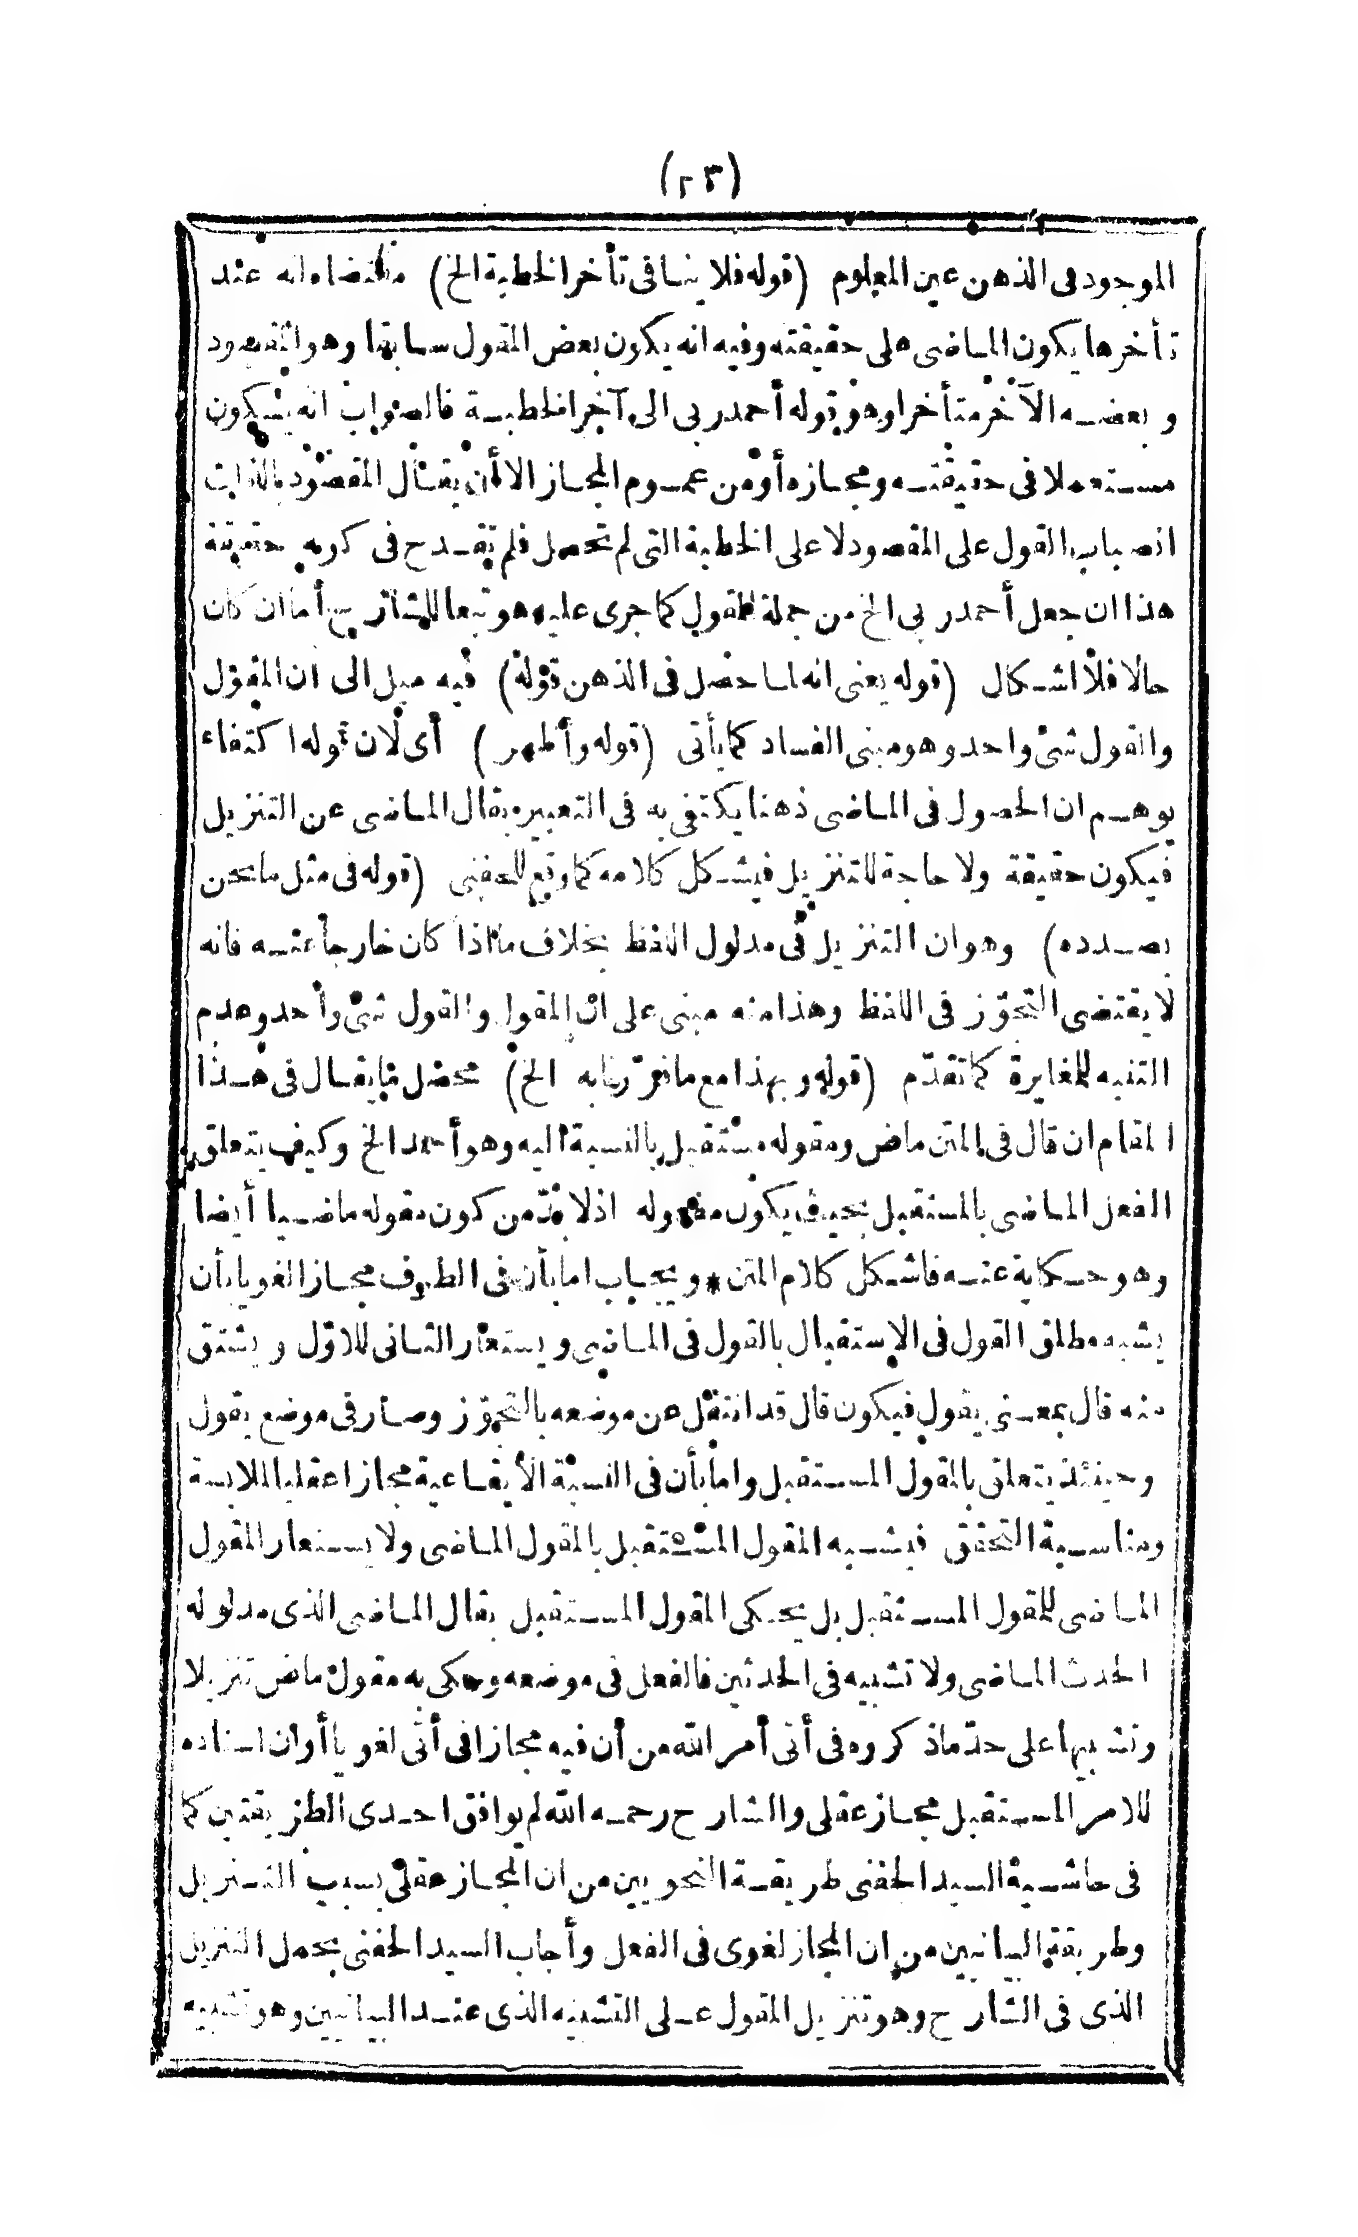 (٢٣)
الموجود فى الذهن عين المعلوم (قوله فلا ينافى تأخر الخطبة الخ) مقتضاه انه عند
تأخرها يكون الماضى على حقيقته وفيه انه يكون بعض المقول سابقا وهو المقصود
وبعضه الآخر متأخرا وهو قوله أحمد ربى الى آخر الخطبة فالصواب انه يكون
مستعملا فى حقيقته ومجازه أو من عموم المجاز الا أن يقال المقصود بالذات
انصباب القول على المقصود لا على الخطبة التى لم تحصل فلم تقدح فى كونه حقيقة
هذا ان جعل أحمد ربى الخ من جملة المقول كما جرى عليه هو تبعا للشارح أما ان كان
حالا فلا اشكال (قوله يعنى انه لما حصل فى الذهن قوله) فيه ميل الى ان المقول
والقول شئ واحد وهو مبنى الفساد كما يأتى (قوله وأظهر) أى لان قوله اكتفاء
يوهم ان الحصول فى الماضى ذهنا يكتفى به فى التعبير بقال الماضى عن التنزيل
فيكون حقيقة ولا حاجة للتنزيل فيشكل كلامه كما وقع للحفنى (قوله فى مثل ما نحن
بصدده) وهو ان التنزيل فى مدلول اللفظ بخلاف ما اذا كان خارجا عنه فانه
لا يقتضى التجوّز فى اللفظ وهذا منه مبنى على ان المقول والقول شئ واحد وعدم
التنبه للمغايرة كما تقدّم (قوله وبهذا مع ما قررنا به الخ) محصل ما يقال فى هذا
المقام ان قال فى المتن ماض ومقوله مستقبل بالنسبة اليه وهو أحمد الخ وكيف يتعلق
الفعل الماضى بالمستقبل بحيث يكون مفعوله اذ لا بدّ من كون مقوله ماضيا أيضا
وهو حكاية عنه فاشكل كلام المتن * ويجاب اما بأن فى الظرف مجازا لغويا بأن
يشبه مطلق القول فى الاستقبال بالقول فى الماضى ويستعار الثانى للاوّل ويشتق
منه قال بمعنى يقول فيكون قال قد انتقل عن موضعه بالتجوّز وصار فى موضع يقول
وحينئذ يتعلق بالمقول المستقبل واما بأن فى النسبة الايقاعية مجازا عقليا لملابسة
ومناسبة التحقق فيشبه المقول المستقبل بالمقول الماضى ولا يستعار المقول
الماضى للمقول المستقبل بل يحكى المقول المستقبل بقال الماضى الذى مدلوله
الحدث الماضى ولا تشبيه فى الحدثين فالفعل فى موضعه وحكى به مقول ماض تنزيلا
وتشبيها على حدّ ما ذكروه فى أتى أمر الله من أن فيه مجازا فى أتى لغويا أو ان اسناده
للامر المستقبل مجاز عقلى والشارح رحمه الله لم يوافق احدى الطريقتين كما
فى حاشية السيد الحفنى طريقة النحويين من ان المجاز عقلى بسبب التنزيل
وطريقة البيانيين من ان المجاز لغوى فى الفعل وأجاب السيد الحفنى بحمل التنزيل
الذى فى الشارح وهو تنزيل المقول على التشبيه الذى عند البيانيين وهو تشبيه